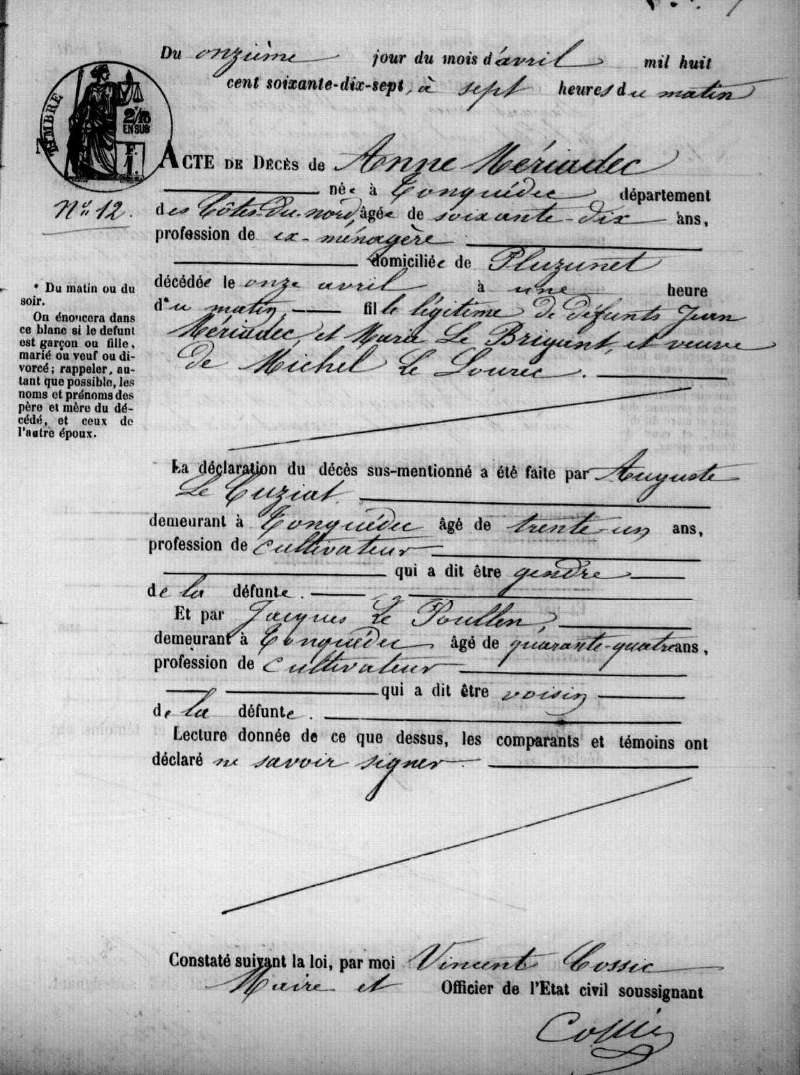 Du onzième jour du mois d'avril mil huit
cent soixante-dix-sept, à sept heures du matin
TIMBRE
2/10
EN SUS
Nº 12.
ACTE DE DÉCÈS de Anne Mériadec
née à Tonquédec département
des Côtes-du-nord, âgée de soixante-dix ans,
profession de ex-ménagère
domiciliée de Pluzunet
décédée le onze avril à une heure
du matin, fille légitime de défunts Jean
Mériadec, et Marie Le Brigant, et veuve
de Michel Le Lourec.
* Du matin ou du
soir.
On énoncera dans
ce blanc si le defunt
est garçon ou fille,
marié ou veuf ou di-
vorcé; rappeler, au-
tant que possible, les
noms et prénoms des
père et mère du dé-
cédé, et ceux de
l'autre époux.
La déclaration du décès sus-mentionné a été faite par Auguste
Le Cuziat
demeurant à Tonquédec âgé de trente-un ans,
profession de cultivateur
qui a dit être gendre
de la défunte.
Et par Jacques Le Poullen,
demeurant à Tonquédec âgé de quarante-quatre ans,
profession de cultivateur
qui a dit être voisin
de la défunte.
Lecture donnée de ce que dessus, les comparants et témoins ont
déclaré ne savoir signer.
Constaté suivant la loi, par moi Vincent Cossic
Maire et Officier de l'Etat civil soussignant
Cossic